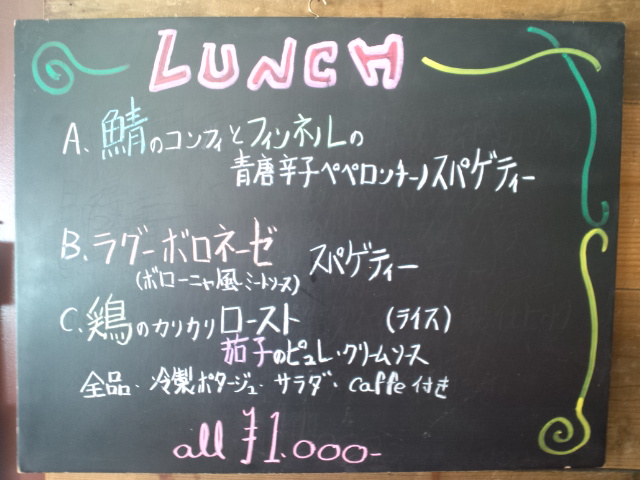 LUNCH
A、鯖のコンフィとフィンネルの
青唐辛子ペペロンチーノスパゲティー
B、ラグーボロネーゼ スパゲティー
(ボローニャ風・ミートソース)
C、鶏のカリカリロースト (ライス)
茄子のピュレ・クリームソース
全品・冷製ポタージュ・サラダ・caffe付き
all ¥1.000-